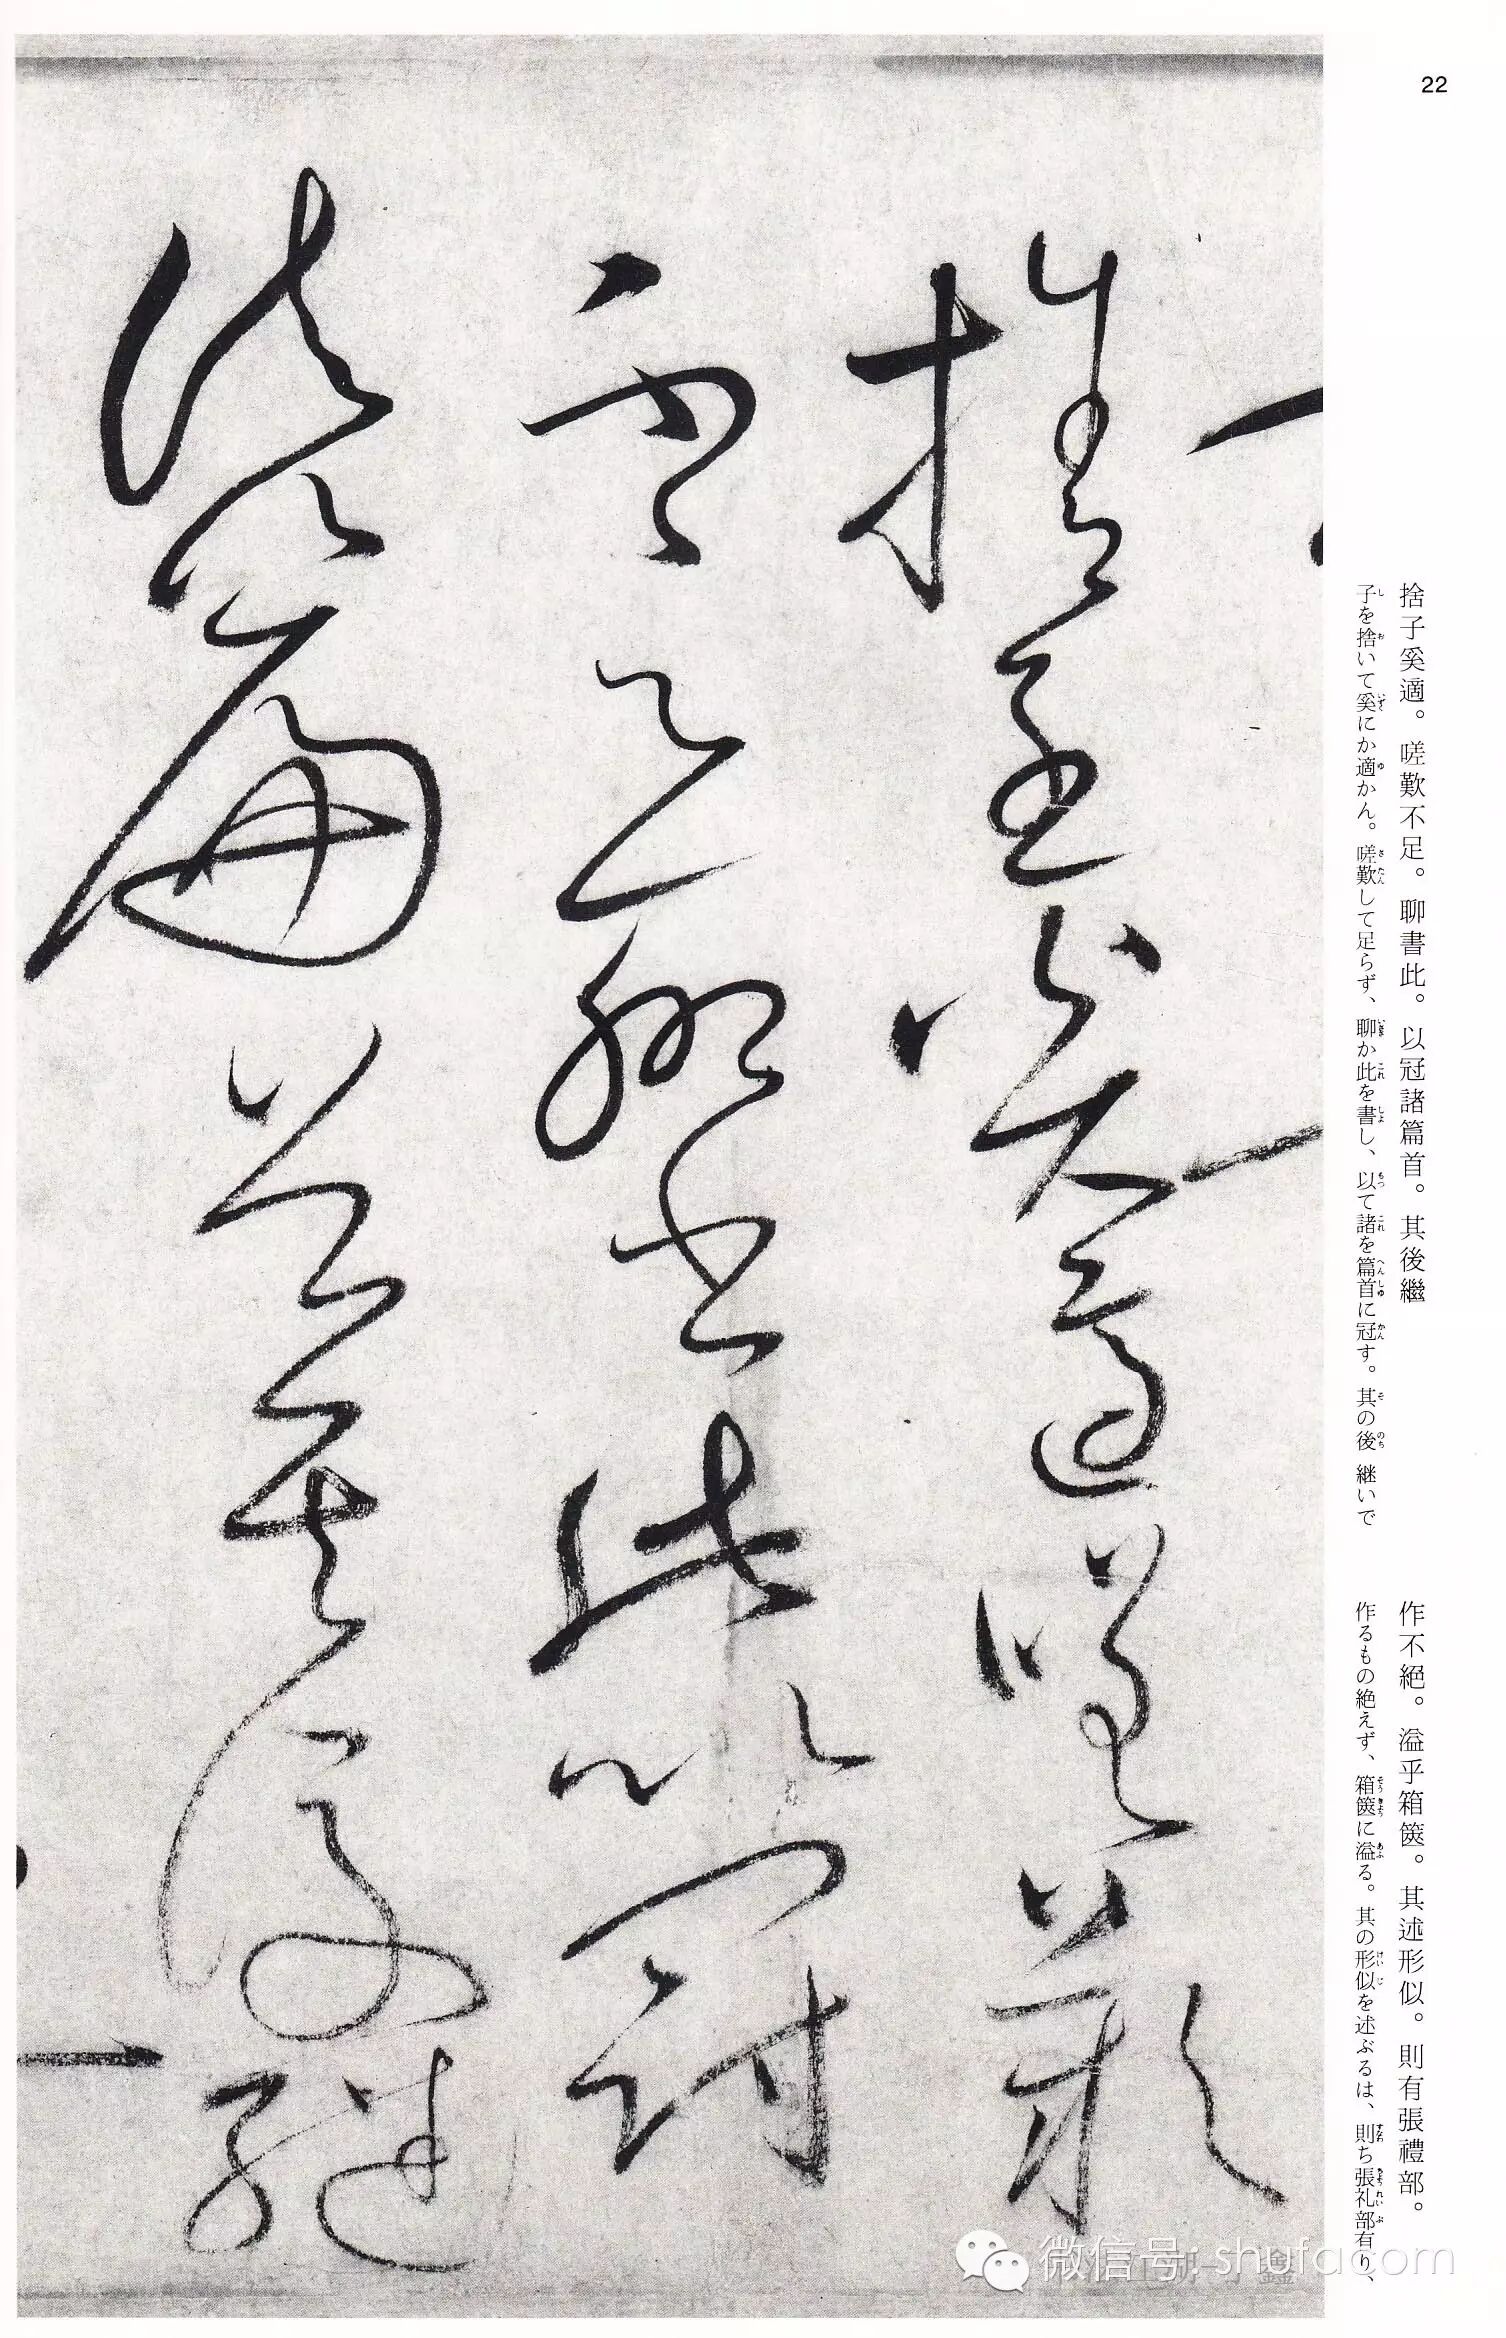 22
捨子奚適。嗟歎不足。聊書此。以冠諸篇首。其後繼
子を捨いて奚にか適かん。嗟歎して足らず、聊か此を書し、以て諸を篇首に冠す。其の後 継いで
作不絕。溢乎箱篋。其述形似。則有張禮部。
作るもの絶えず、箱篋に溢る。其の形似を述ぶるは、則ち張礼部有り、
捨子奚適嗟歎
不足聊書此以冠
諸篇首其後繼
微信号: shufacom